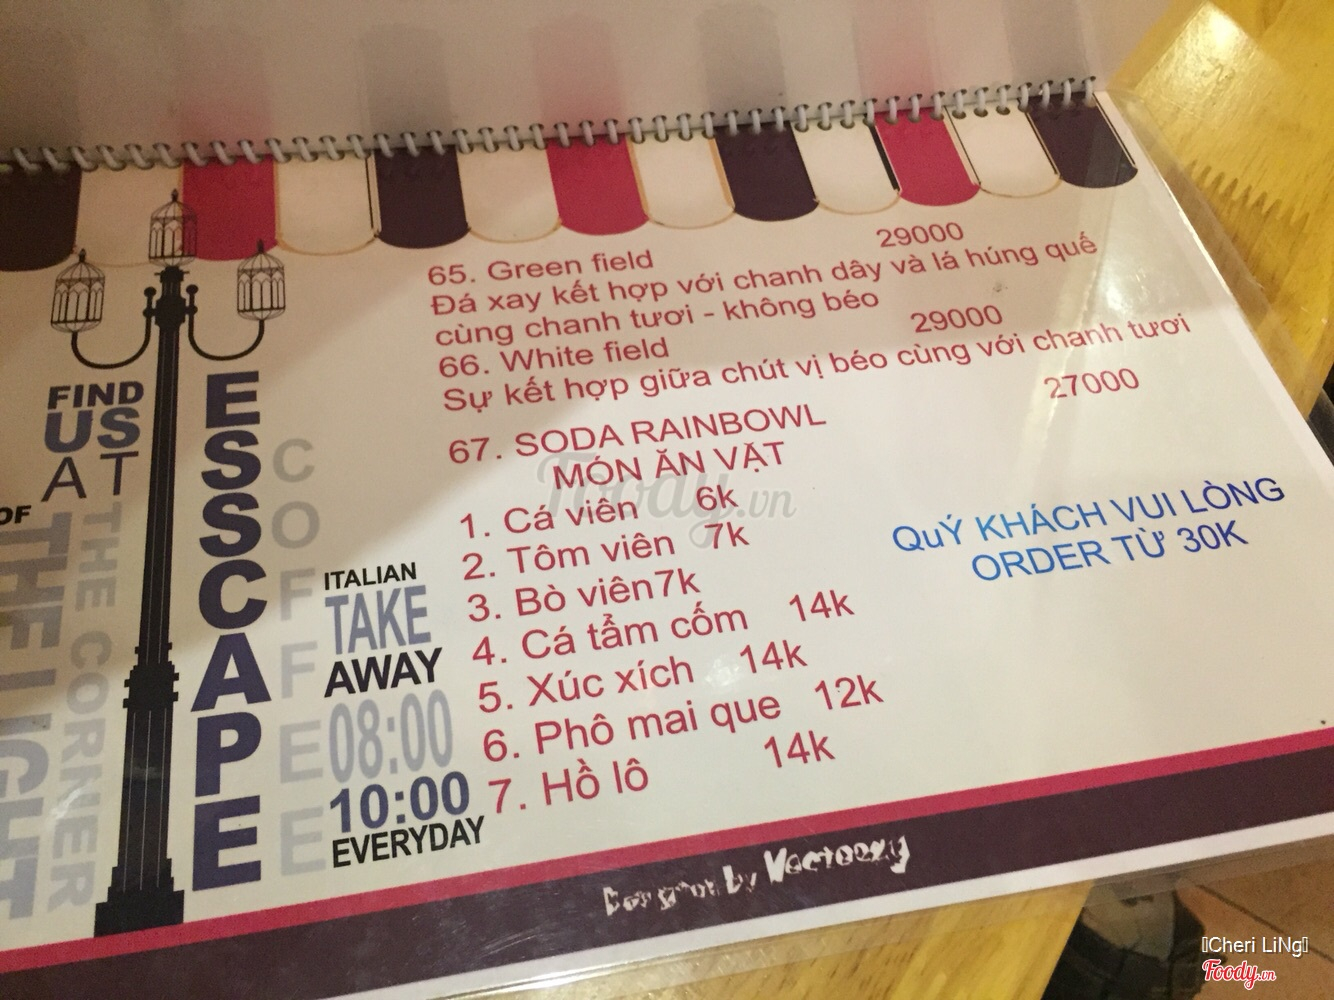 65. Green field 29000
Đá xay kết hợp với chanh dây và lá húng quế
cùng chanh tươi - không béo
66. White field 29000
Sự kết hợp giữa chút vị béo cùng với chanh tươi
67. SODA RAINBOWL 27000
MÓN ĂN VẶT
1. Cá viên 6k
2. Tôm viên 7k
3. Bò viên7k
4. Cá tẩm cốm 14k
5. Xúc xích 14k
6. Phô mai que 12k
7. Hồ lô 14k
QuÝ KHÁCH VUI LÒNG
ORDER TỪ 30K
FIND
US
AT
THE CORNER
OF
THE LIGHT
ESSCAPE
COFFEE
ITALIAN
TAKE
AWAY
08:00
10:00
EVERYDAY
Designed by Vecteezy
Foody.vn
Cheri LiNg
Foody.vn